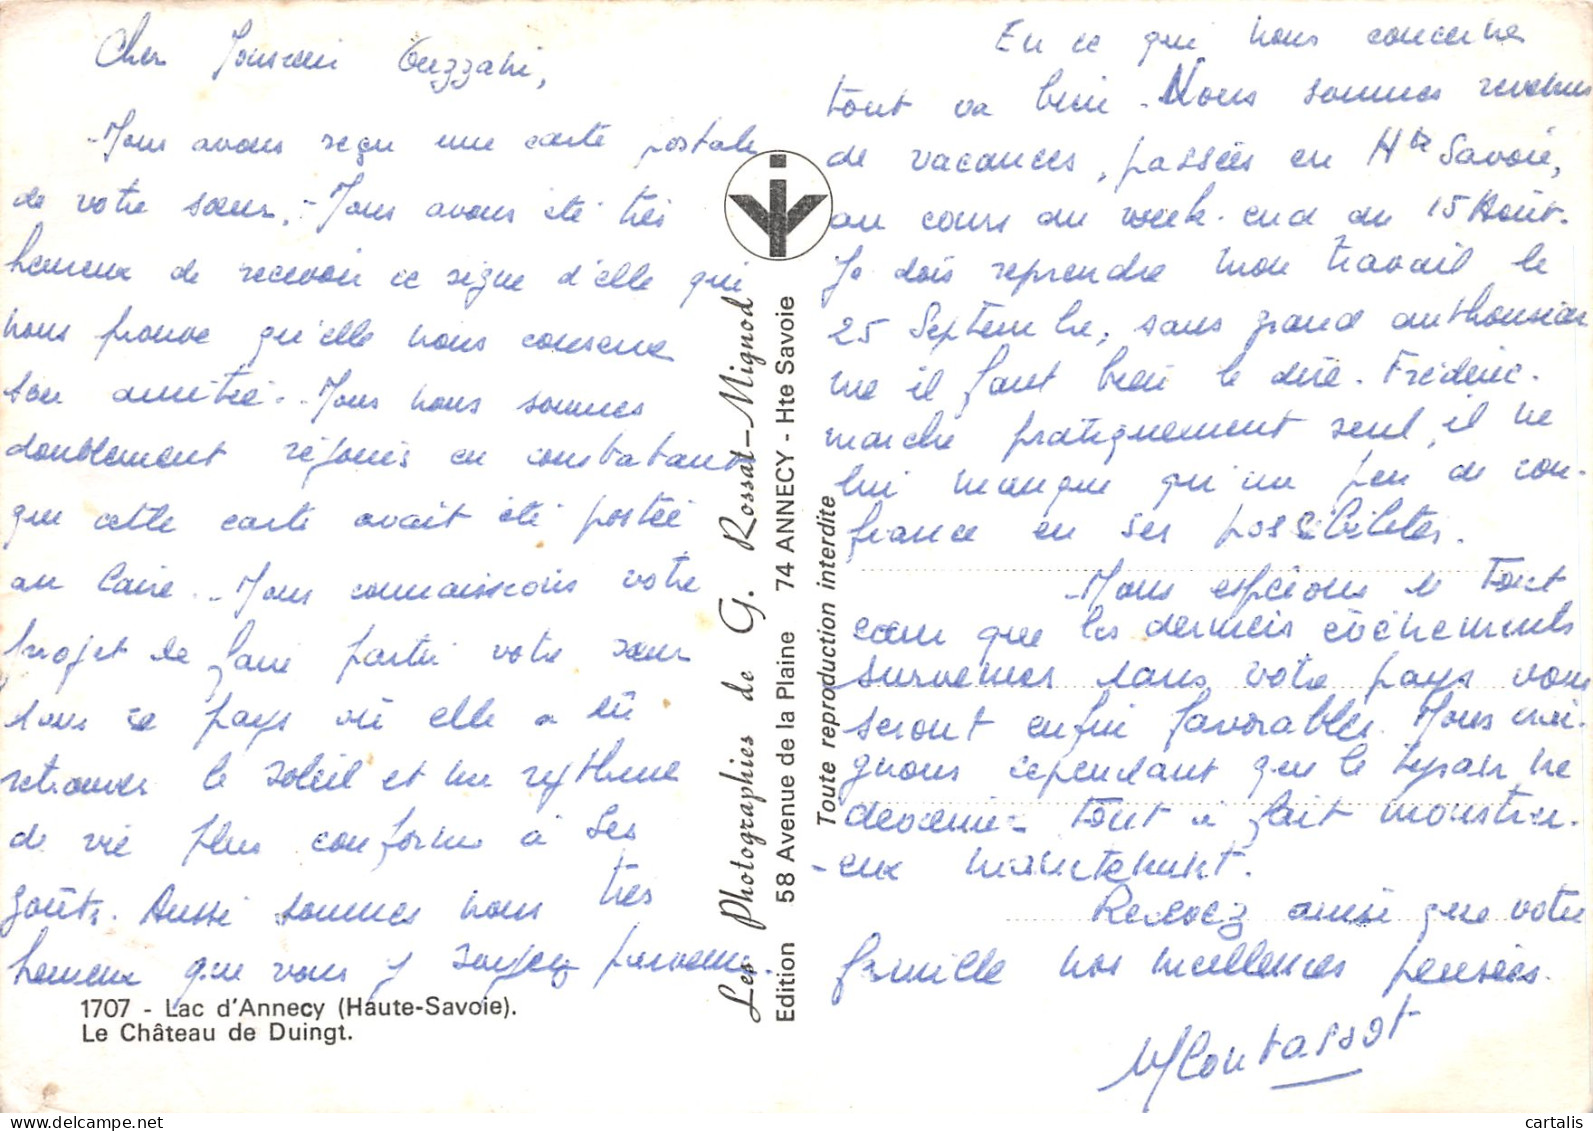 Cher Monsieur
Nous avons reçu une carte postale
de votre sœur. - Nous avons été très
heureux de recevoir ce signe d'elle qui
nous prouve qu'elle nous conserve
son amitié. - Nous nous sommes
doublement réjouis en constatant
que cette carte avait été postée
au Caire. - Nous connaissions votre
projet de faire partir votre sœur
dans ce pays où elle a dû
retrouver le soleil et un rythme
de vie plus conforme à ses
goûts. Aussi sommes nous très
heureux que vous y soyez parvenu.
1707 - Lac d'Annecy (Haute-Savoie).
Le Château de Duingt.
Les Photographies de G. Rossat-Mignod
Edition 58 Avenue de la Plaine 74 ANNECY - Hte Savoie
Toute reproduction interdite
En ce qui nous concerne
tout va bien. Nous sommes revenus
de vacances, passées en Hte Savoie,
au cours du week-end du 15 Août.
Je dois reprendre mon travail le
25 Septembre, sans grand enthousias
me il faut bien le dire. Frédéric
marche pratiquement seul, il ne
lui manque qu'un peu de con-
fiance en ses possibilités.
Nous espérons de tout
cœur que les derniers évènements
survenus dans votre pays vous
seront enfin favorables. Nous crai-
gnons cependant que le tyran ne
devienne tout à fait monstru-
-eux maintenant.
Recevez ainsi que votre
famille nos meilleures pensées.
Montassot